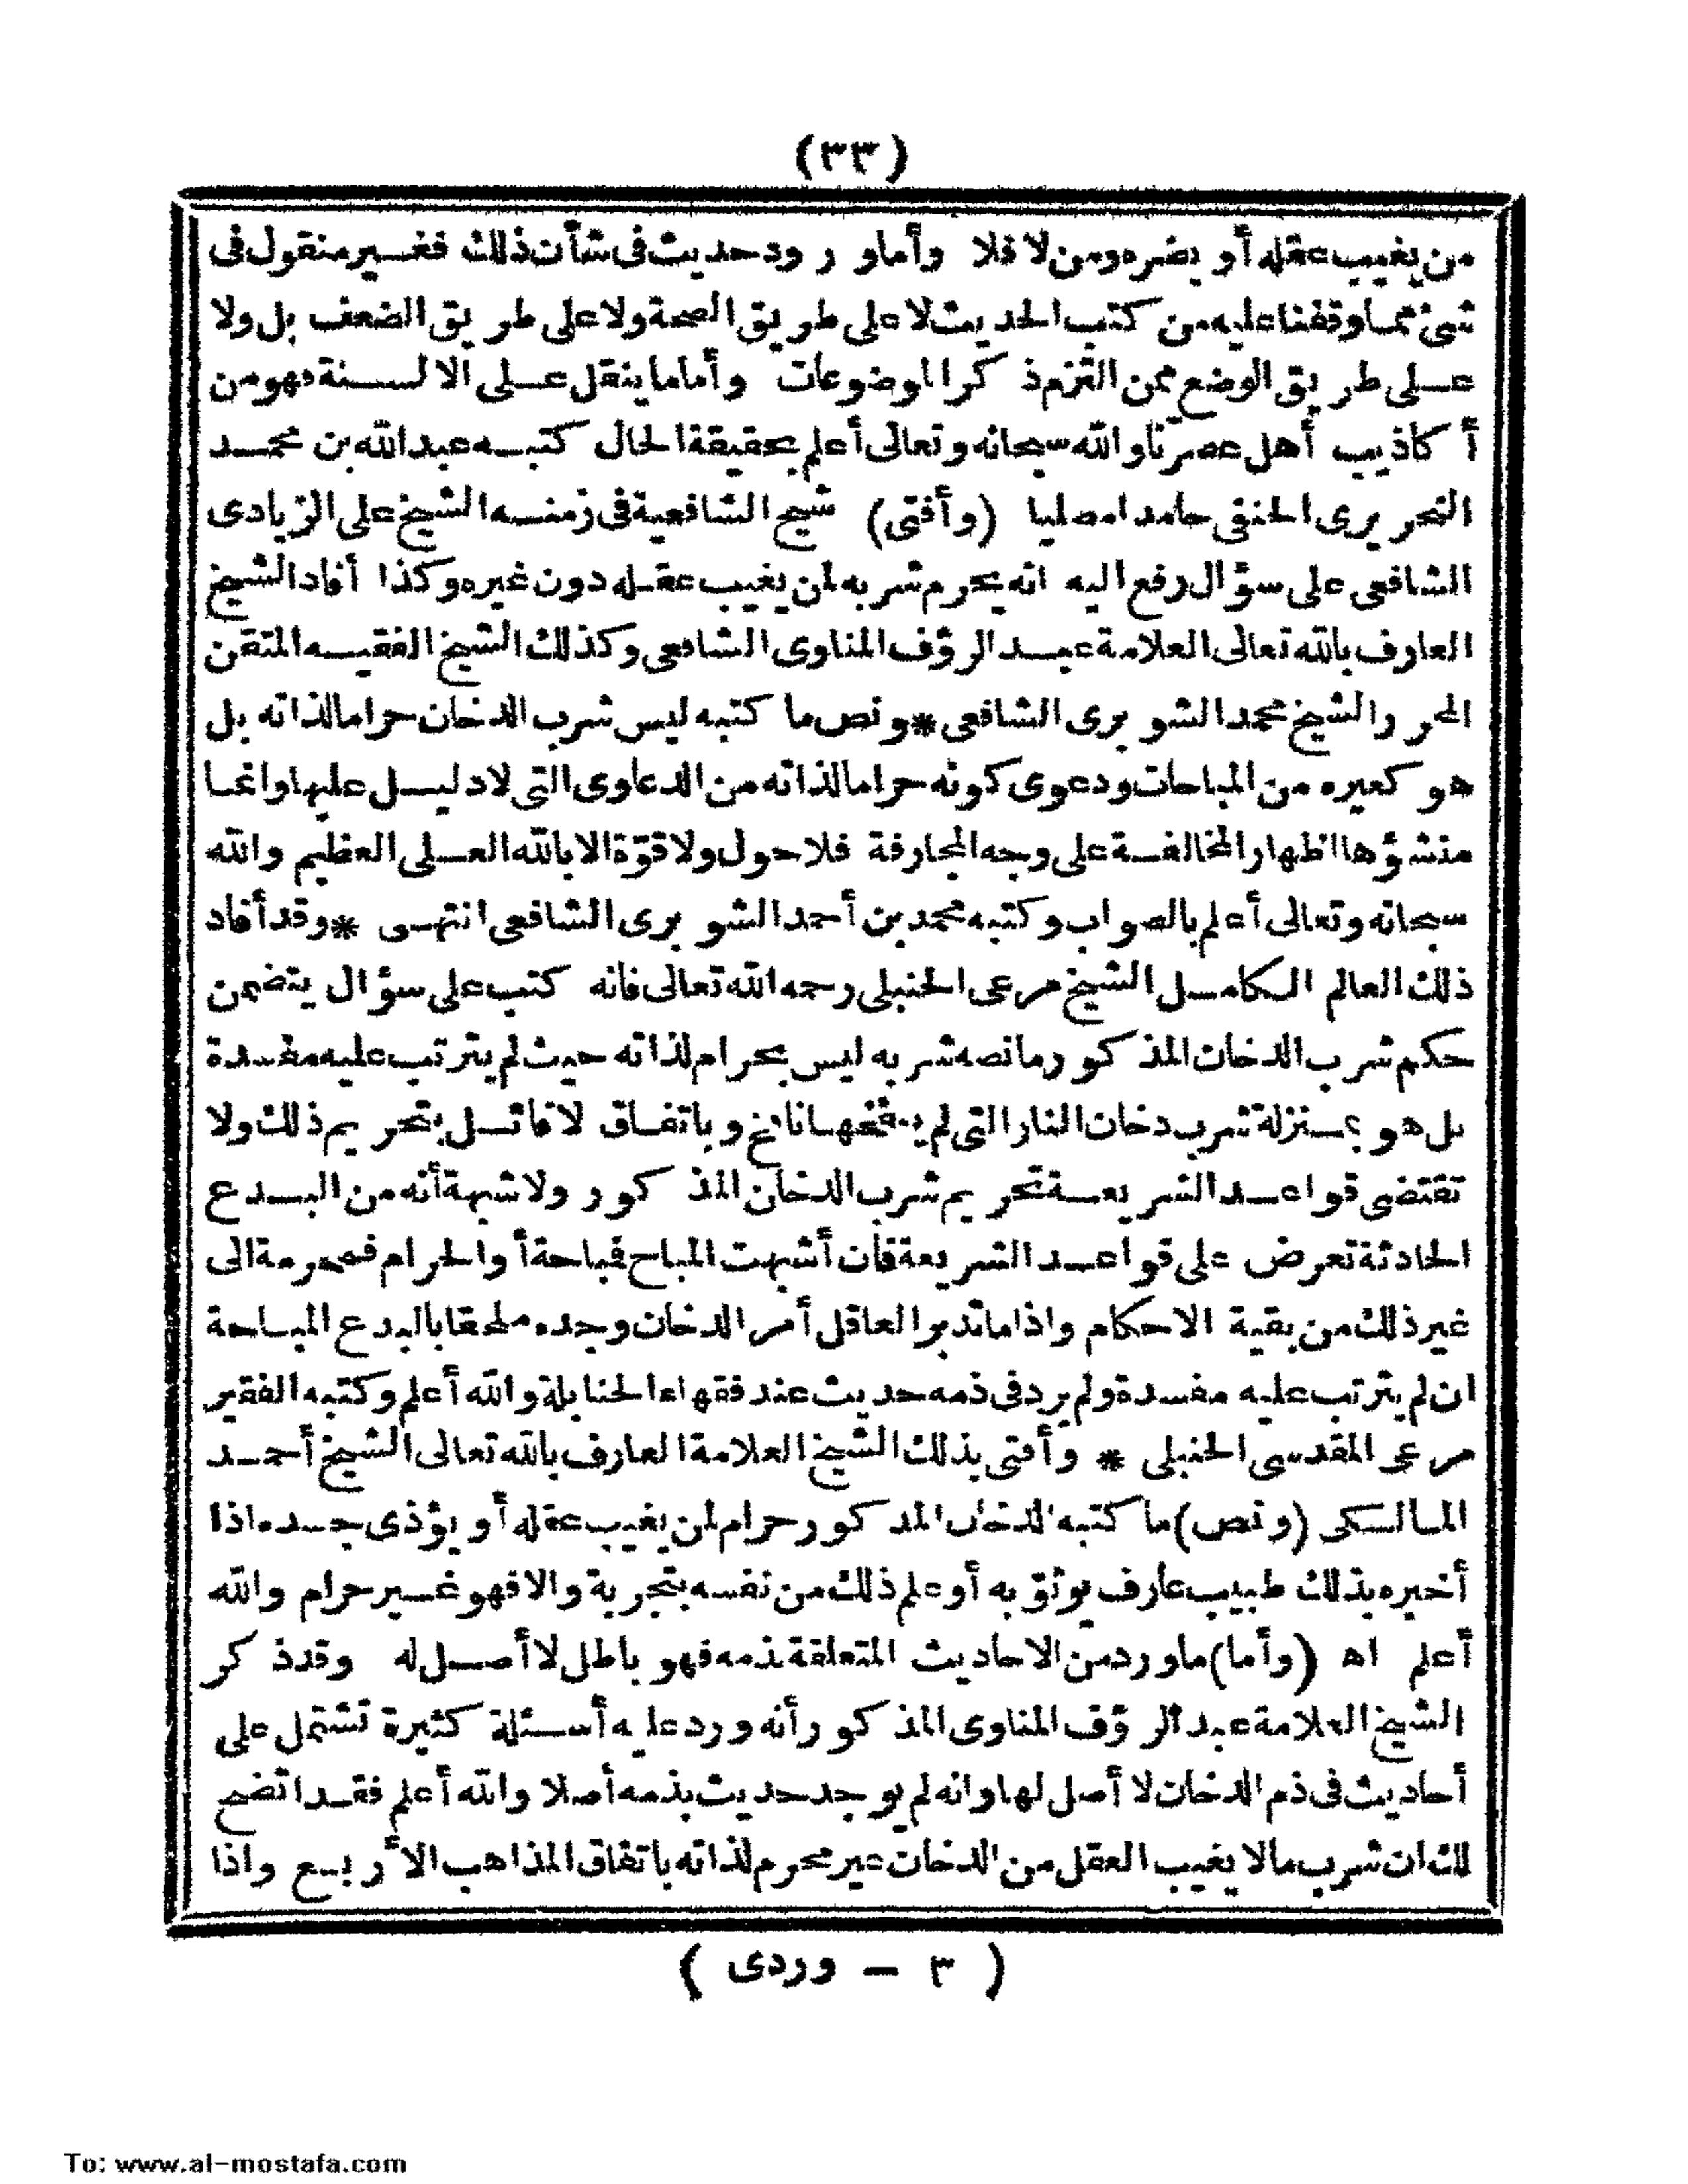 (٣٣)
من يغيب عقله أو يضره ومن لا فلا وأما ورود حديث فى شأن ذلك فغير منقول فى
شئ مما وقفنا عليه من كتب الحديث لا على طريق الصحة ولا على طريق الضعف بل ولا
على طريق الوضع ممن التزم ذكر الموضوعات وأما ما ينقل على الالسنة فهو من
أكاذيب أهل عصرنا والله سبحانه وتعالى أعلم بحقيقة الحال كتبه عبد الله بن محمد
النحريرى الحنفى حامدا مصليا (وأفتى) شيخ الشافعية فى زمنه الشيخ على الزيادى
الشافعى على سؤال رفع اليه انه يحرم شربه لمن يغيب عقله دون غيره وكذا أفاد الشيخ
العارف بالله تعالى العلامة عبد الرؤف المناوى الشافعى وكذلك الشيخ الفقيه المتقن
المحرر الشيخ محمد الشوبرى الشافعى * ونص ما كتبه ليس شرب الدخان حراما لذاته بل
هو كغيره من المباحات ودعوى كونه حراما لذاته من الدعاوى التى لا دليل عليها وانما
منشؤها اظهار المخالفة على وجه المجازفة فلا حول ولا قوّة الا بالله العلى العظيم والله
سبحانه وتعالى أعلم بالصواب وكتبه محمد بن أحمد الشوبرى الشافعى انتهى * وقد أفاد
ذلك العالم الكامل الشيخ مرعى الحنبلى رحمه الله تعالى فانه كتب على سؤال يتضمن
حكم شرب الدخان المذكور ما نصه شربه ليس بحرام لذاته حيث لم يترتب عليه مفسدة
بل هو بمنزلة شرب دخان النار التى لم ينفخها نافخ وباتفاق لا قائل بتحريم ذلك ولا
تقتضى قواعد الشريعة تحريم شرب الدخان المذكور ولا شبهة أنه من البدع
الحادثة تعرض على قواعد الشريعة فان أشبهت المباح فباحة أو الحرام فمحرمة الى
غير ذلك من بقية الاحكام واذا ما تدبر العاقل أمر الدخان وجده ملحقا بالبدع المباحة
ان لم يترتب عليه مفسدة ولم يرد فى ذمه حديث عند فقهاء الحنابلة والله أعلم وكتبه الفقير
مرعى المقدسى الحنبلى * وأفتى بذلك الشيخ العلامة العارف بالله تعالى الشيخ أحمد
المالكى (ونص) ما كتبه الدخان المذكور حرام لمن يغيب عقله أو يؤذى جسده اذا
أخبره بذلك طبيب عارف يوثق به أو علم ذلك من نفسه بتجربة والا فهو غير حرام والله
أعلم اه (وأما) ما ورد من الاحاديث المتعلقة بذمه فهو باطل لا أصل له وقد ذكر
الشيخ العلامة عبد الرؤف المناوى المذكور أنه ورد عليه أسئلة كثيرة تشتمل على
أحاديث فى ذم الدخان لا أصل لها وانه لم يوجد حديث بذمه أصلا والله أعلم فقد اتضح
لك ان شرب ما لا يغيب العقل من الدخان غير محرم لذاته باتفاق المذاهب الأربع واذا
( ٣ – وردى )
To: www.al-mostafa.com